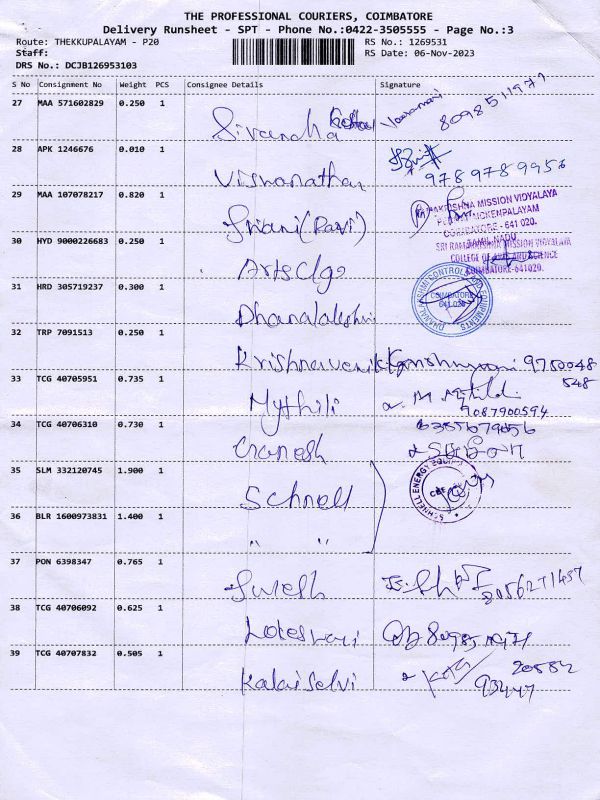 THE PROFESSIONAL COURIERS, COIMBATORE
Delivery Runsheet - SPT - Phone No.:0422-3505555 - Page No.:3
Route: THEKKUPALAYAM - P20 RS No.: 1269531
Staff: RS Date: 06-Nov-2023
DRS No.: DCJB126953103
S No Consignment No Weight PCS Consignee Details Signature
27 MAA 571602829 0.250 1 8098511971
28 APK 1246676 0.010 1 Viswanathan 9789789956
29 MAA 107078217 0.820 1 (Ravi)
RAMAKRISHNA MISSION VIDYALAYA
COIMBATORE - 641 020.
TAMIL NADU
30 HYD 9000226683 0.250 1 Arts Clge
SRI RAMAKRISHNA MISSION VIDYALAYA
COLLEGE OF ARTS AND SCIENCE
COIMBATORE-641020.
31 HRD 305719237 0.300 1 Dhanalakshmi
DHANALAKSHMI CONTROLS AND EQUIPMENTS
COIMBATORE
641 020
32 TRP 7091513 0.250 1 Krishnaveni 9750048
548
33 TCG 40705951 0.735 1 Mythili
9087900594
34 TCG 40706310 0.730 1 Ganesh
35 SLM 332120745 1.900 1 Schnell
SCHNELL ENERGY EQUIP
CBE
36 BLR 1600973831 1.400 1 " "
37 PON 6398347 0.765 1 Suresh 8056271437
38 TCG 40706092 0.625 1
39 TCG 40707832 0.505 1 Kalaiselvi 20582
93447